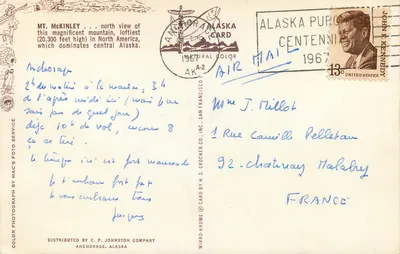 MT. McKINLEY . . . north view of
this magnificent mountain, loftiest
(20,300 feet high) in North America,
which dominates central Alaska.
ALASKA
CARD
NATURAL COLOR
A-2
ANCHORAGE
1967
AK
ALASKA PURCHASE
CENTENNIAL
1967
JOHN F. KENNEDY
13c UNITED STATES
AIR MAIL
Anchorage
2h du matin à la maison, 3h
de l'après midi ici (mais je ne
sais pas de quel jour)
déjà 10h de vol, encore 8
ça se tire.
le temps ici est fort
Je t'embrasse fort fort
vous embrasse tous
Jacques
Mme J. Millot
1 Rue Camille Pelletan
92 - Chatenay Malabry
FRANCE
COLOR PHOTOGRAPH BY MAC'S FOTO SERVICE
MIRRO-KROME CARD BY H. S. CROCKER CO., INC., SAN FRANCISCO
DISTRIBUTED BY C. P. JOHNSTON COMPANY
ANCHORAGE, ALASKA